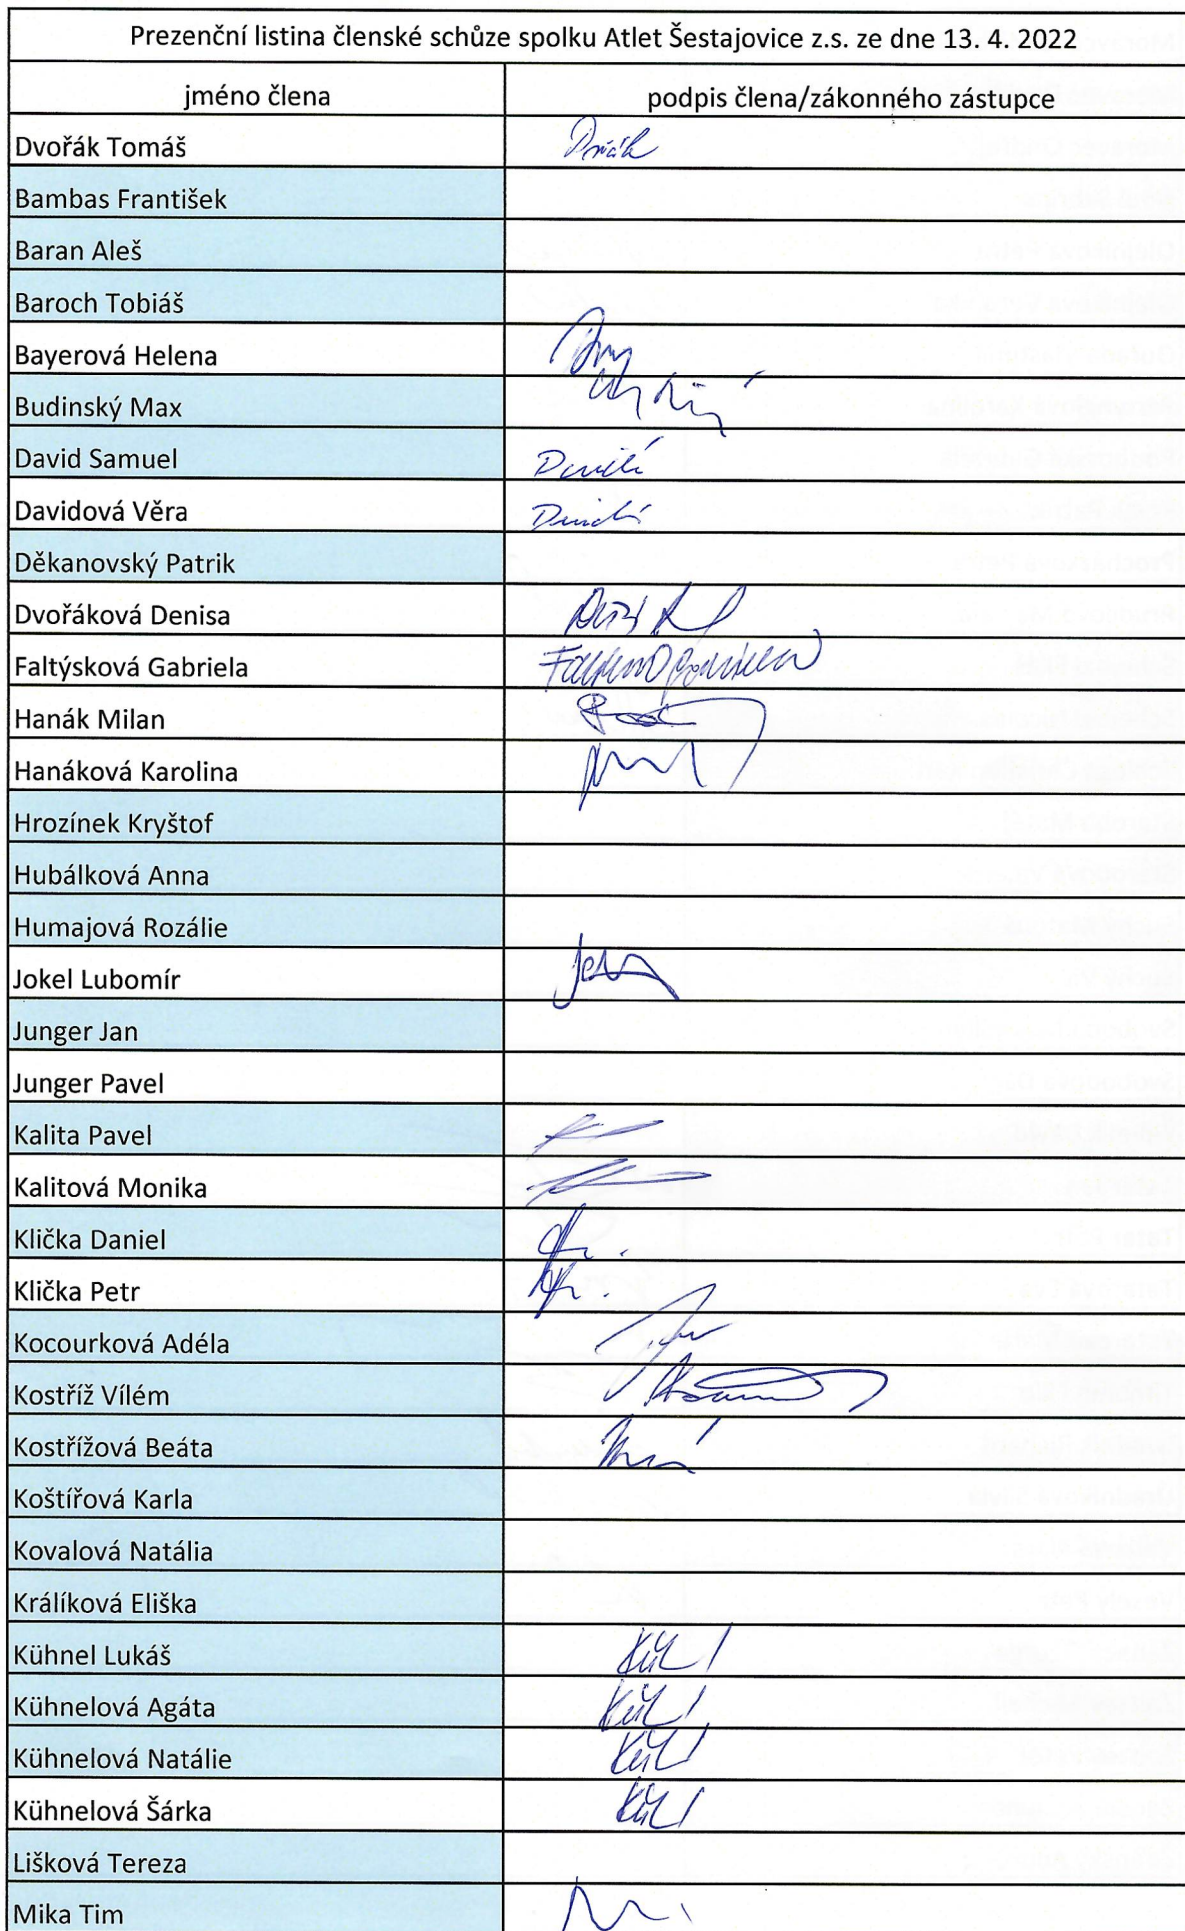 Prezenční listina členské schůze spolku Atlet Šestajovice z.s. ze dne 13. 4. 2022
jméno člena podpis člena/zákonného zástupce
Dvořák Tomáš
Bambas František
Baran Aleš
Baroch Tobiáš
Bayerová Helena
Budinský Max
David Samuel
Davidová Věra
Děkanovský Patrik
Dvořáková Denisa
Faltýsková Gabriela
Hanák Milan
Hanáková Karolina
Hrozínek Kryštof
Hubálková Anna
Humajová Rozálie
Jokel Lubomír
Junger Jan
Junger Pavel
Kalita Pavel
Kalitová Monika
Klička Daniel
Klička Petr
Kocourková Adéla
Kostříž Vílém
Kostřížová Beáta
Koštířová Karla
Kovalová Natália
Králíková Eliška
Kühnel Lukáš
Kühnelová Agáta
Kühnelová Natálie
Kühnelová Šárka
Lišková Tereza
Mika Tim